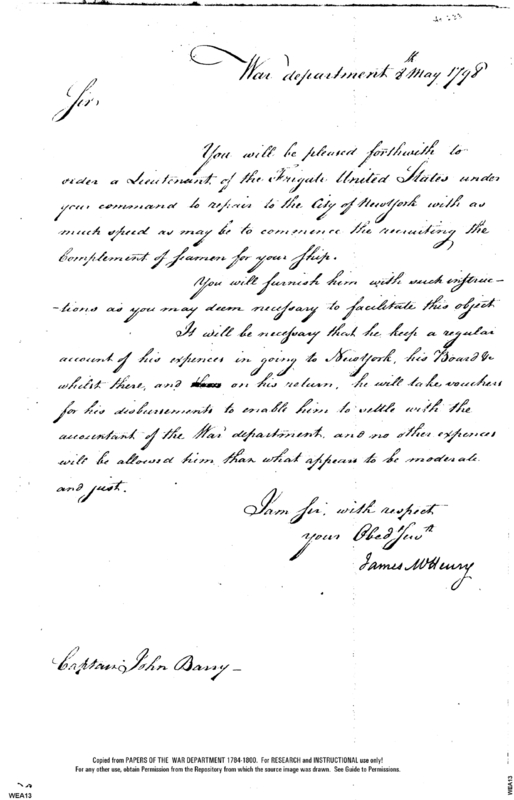 War department 8th May 1798
Sir,
You will be pleased forthwith to
order a Lieutenant of the Frigate United States under
your command to repair to the City of New York with as
much speed as may be to commence the recruiting the
Complement of seamen for your Ship.
You will furnish him with such instruc-
-tions as you may deem necessary to facilitate this object
It will be necessary that he keep a regular
account of his expences in going to New York, his Board &
whilst there, and on his return, he will take vouchers
for his disbursements to enable him to settle with the
accountant of the War department, and no other expences
will be allowed him than what appears to be moderate
and just.
I am Sir, with respect
your Obed Servt
James McHenry
Captain John Barry -
Copied from PAPERS OF THE WAR DEPARTMENT 1784-1800. For RESEARCH and INSTRUCTIONAL use only!
For any other use, obtain Permission from the Repository from which the source image was drawn. See Guide to Permissions.
WEA13
WEA13